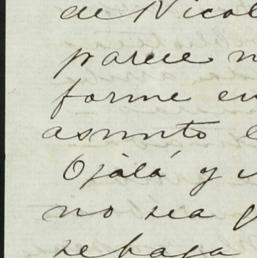 de Nicol
parece n
forme en
asunto e
Ojalá y
no sea
sebaga